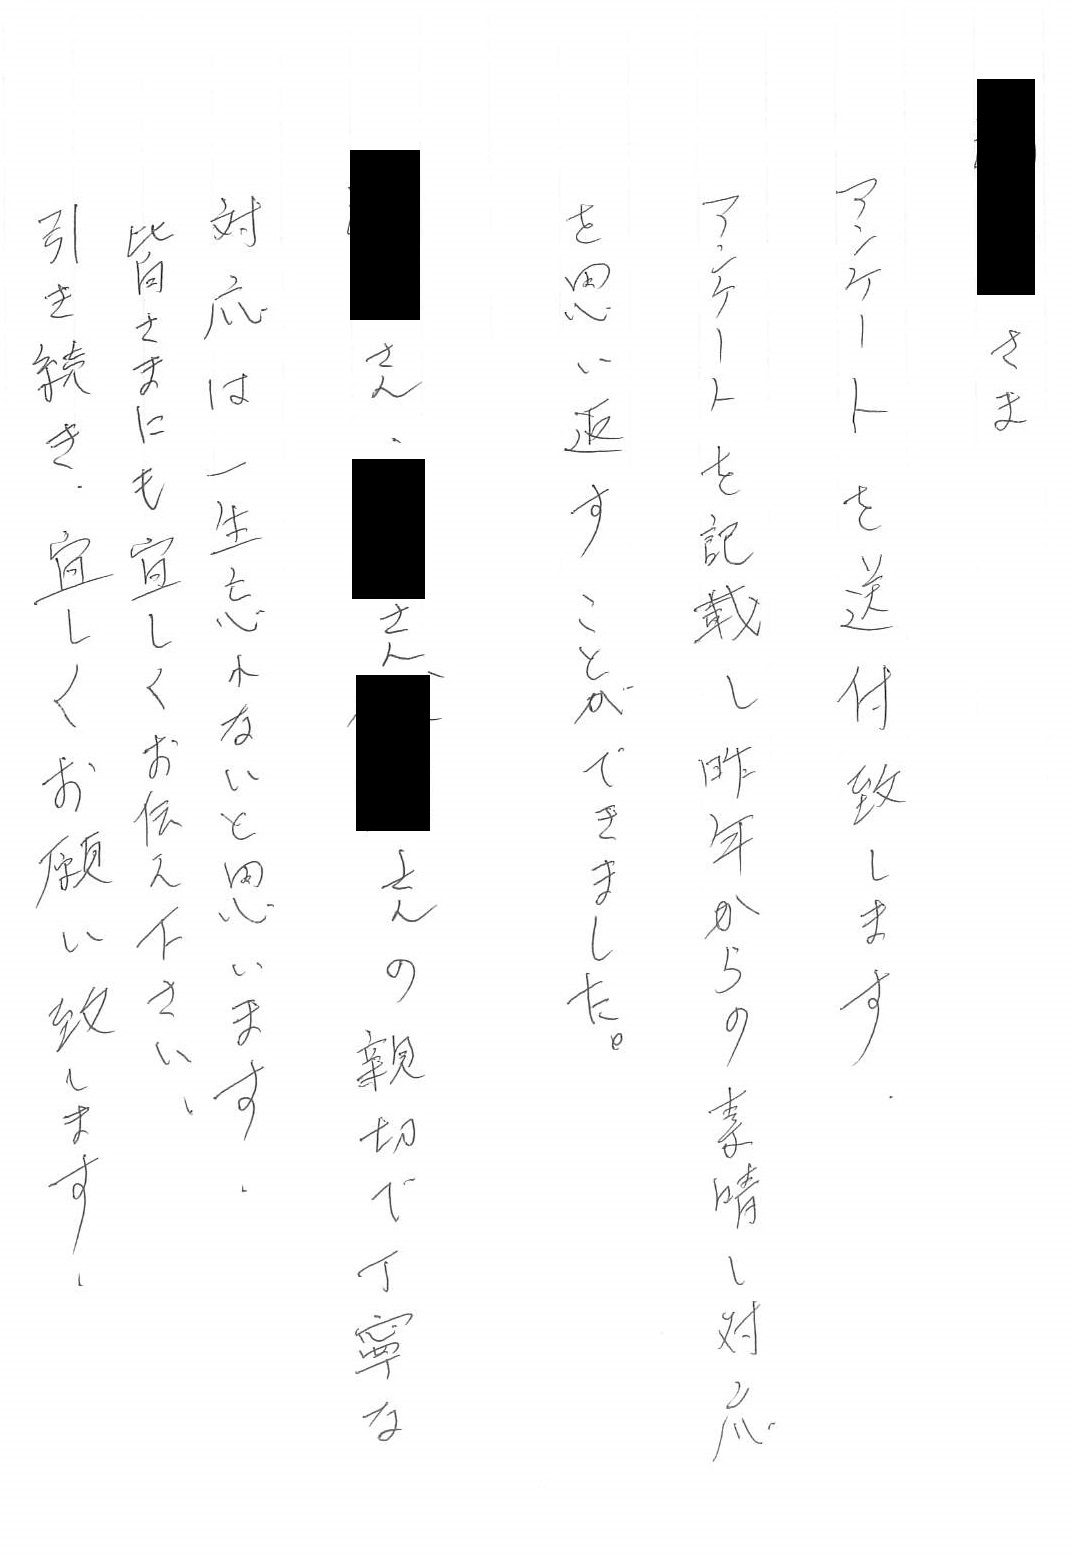 さま
アンケートを送付致します.
アンケートを記載し昨年からの素晴し対応
を思い返すことができました。
さん、さん、さんの親切で丁寧な
対応は一生忘れないと思います.
皆さまにも宜しくお伝え下さい、
引き続き、宜しくお願い致します.